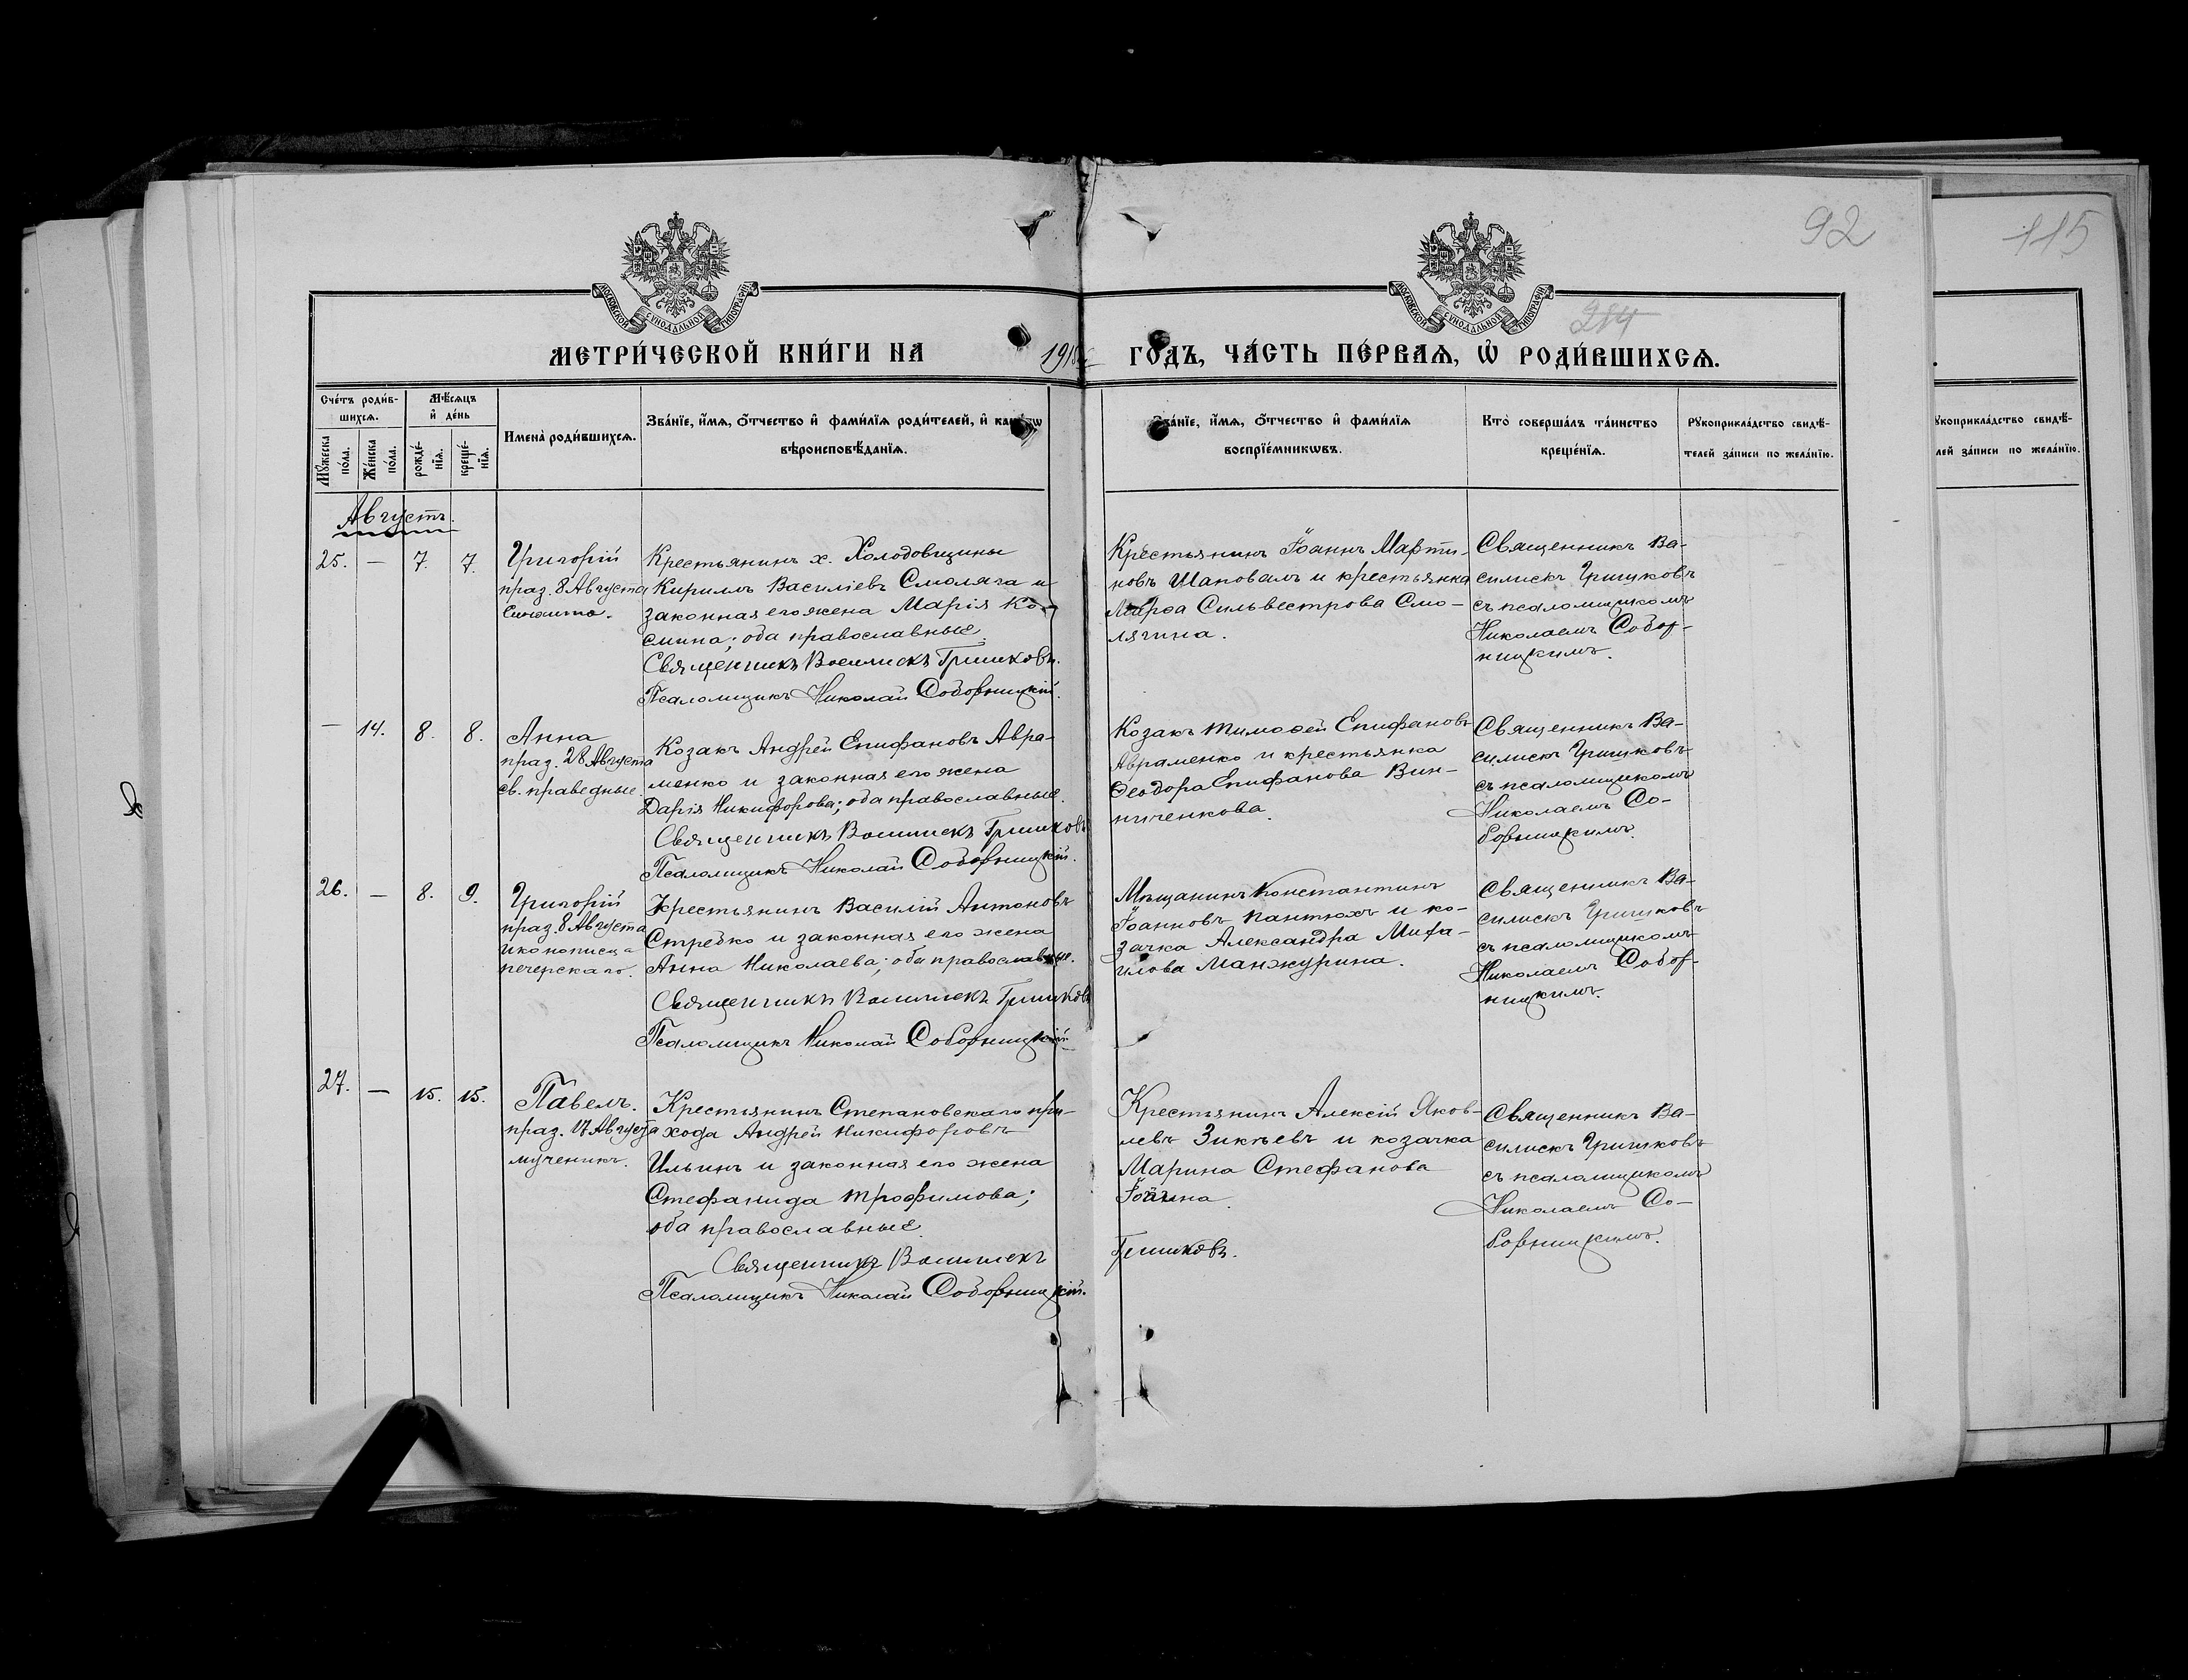 92
115
МОСКОВСКОЙ СУНОДАЛЬНОЙ ТИПОГРАФІИ
МОСКОВСКОЙ СУНОДАЛЬНОЙ ТИПОГРАФІИ
214
МЕТРИ́ЧЕСКОЙ КНИ́ГИ НА
ГО́ДЪ, ЧА́СТЬ ПЕ́РВАѦ, Ѡ҆ РОДИ́ВШИХСѦ.
Сче́тъ роди́в-
шихсѧ.
Мꙋ́жеска по́ла.
Же́нска по́ла.
Мѣ́сѧцъ
и҆ де́нь
рожде́-
нїѧ.
креще́-
нїѧ.
И҆мена̀ роди́вшихсѧ.
Зва́нїе, и҆́мѧ, ѻ҆́тчество и҆ фами́лїѧ роди́телей, и҆
вѣроисповѣ́данїѧ.
Зва́нїе, и҆́мѧ, ѻ҆́тчество и҆ фами́лїѧ
воспрїе́мникѡвъ.
Кто̀ соверша́лъ та́инство
креще́нїѧ.
Рꙋкоприкла́дство свидѣ́-
телей за́писи по жела́нїю.
ꙋкоприкла́дство свидѣ́-
лей за́писи по жела́нїю.
Августъ.
25. — 7. 7.
Григорій
праз. 8 Августа
Крестьянинъ х. Холодовщины
Кириллъ Василіевъ Смоляга и
законная его жена Марія Ко-
смина; оба православные.
Священникъ Василискъ Гришковъ.
Псаломщикъ Николай Соборницкій.
Крестьянинъ Іоаннъ Марти-
новъ Шаповалъ и крестьянка
Сильвестрова Смо-
лягина.
Священникъ Ва-
силискъ Гришковъ
съ псаломщикомъ
Николаемъ Собор-
ницкимъ.
— 14. 8. 8.
Анна
праз. 28 Августа
св. праведные.
Козакъ Андрей Епифановъ Авра-
менко и законная его жена
Дарія Никифорова; оба православные.
Священникъ Василискъ Гришковъ
Псаломщикъ Николай Соборницкій.
Козакъ Тимоѳей Епифановъ
Авраменко и крестьянка
Ѳеодора Епифанова Вин-
ниченкова.
Священникъ Ва-
силискъ Гришковъ
съ псаломщикомъ
Николаемъ Со-
борницкимъ.
26. — 8. 9.
Григорій
праз. 8 Августа
иконописца
печерскаго.
Крестьянинъ Василій Антоновъ
Стребко и законная его жена
Анна Николаева; оба православные.
Священникъ Василискъ Гришковъ
Псаломщикъ Николай Соборницкій
Мѣщанинъ Константинъ
Іоанновъ Пантюхъ и ко-
зачка Александра Миха-
илова Манжурина.
Священникъ Ва-
силискъ Гришковъ
съ псаломщикомъ
Николаемъ Собор-
ницкимъ.
27. — 15. 15.
Павелъ.
праз. 17 Августа
мученикъ.
Крестьянинъ Степановскаго при-
хода Андрей Никифоровъ
Ильинъ и законная его жена
Стефанида Трофимова;
оба православные.
Священникъ Василискъ
Псаломщикъ Николай Соборницкій.
Крестьянинъ Алексій Яков-
левъ Зикѣевъ и козачка
Марина Стефанова
Гришковъ.
Священникъ Ва-
силискъ Гришковъ
съ псаломщикомъ
Николаемъ Со-
борницкимъ.